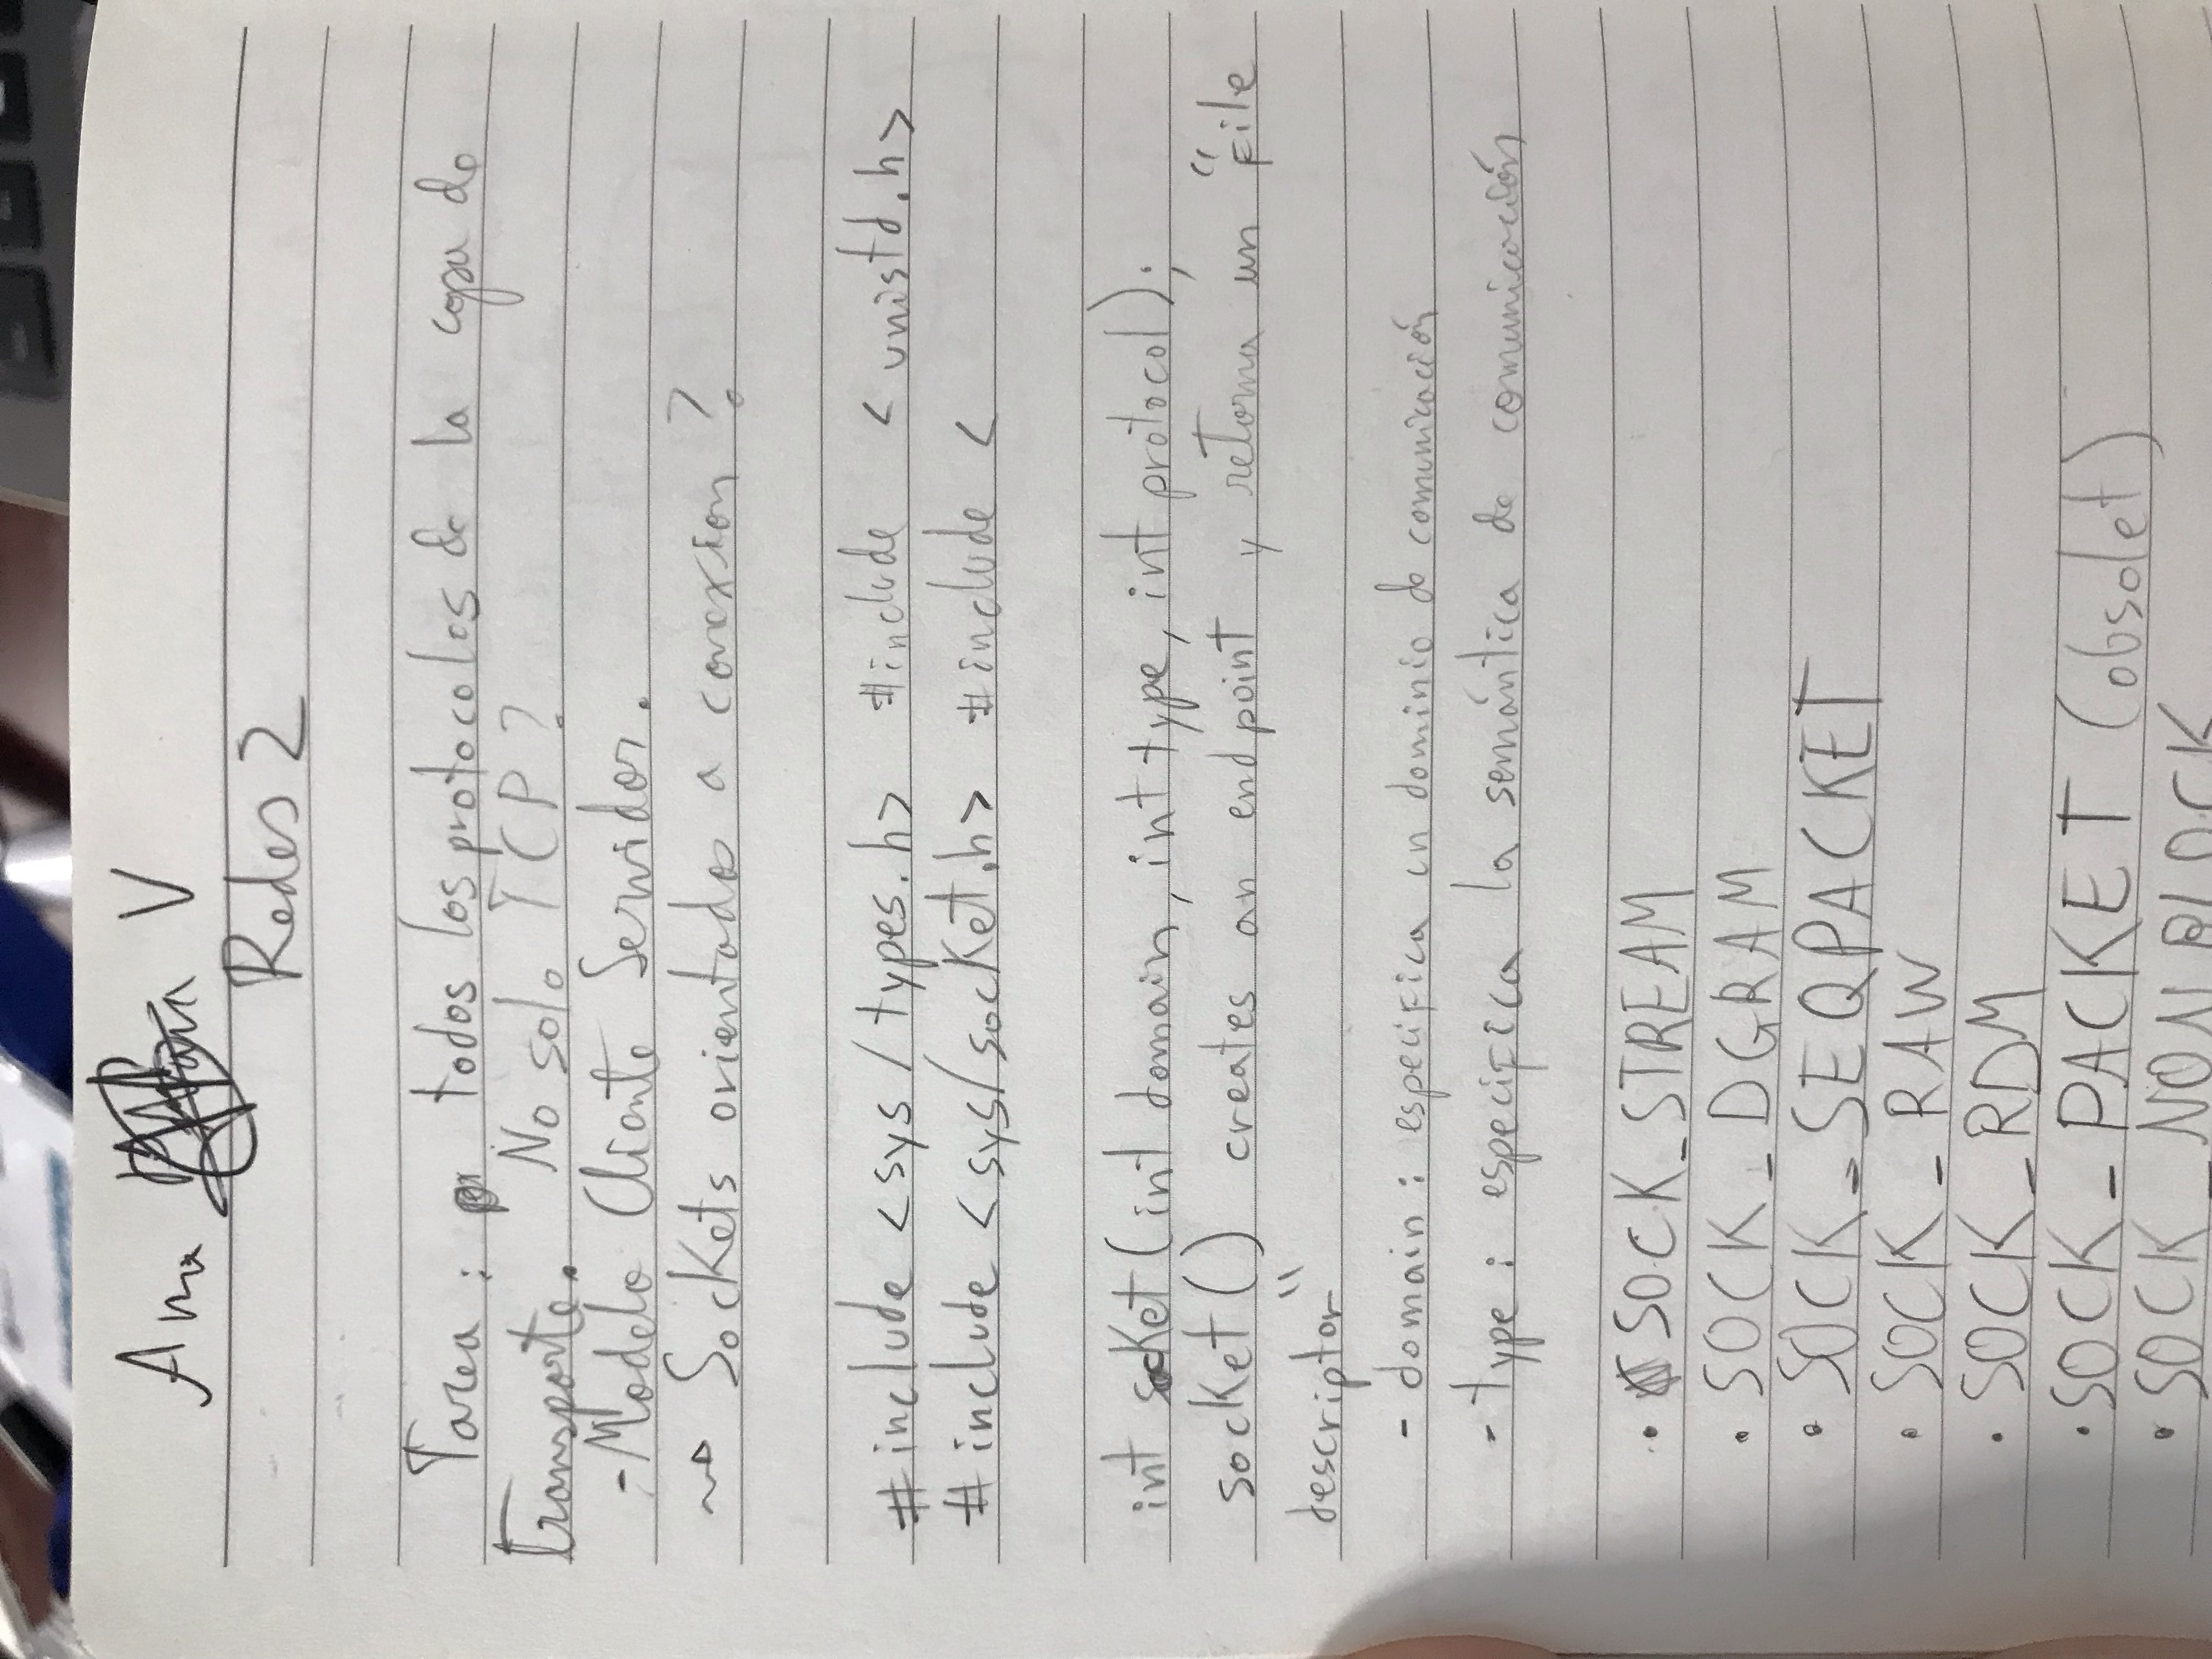 Ana V
Redes 2
Tarea : todos los protocolos de la capa de
transporte. No solo TCP?
- Modelo Cliente Servidor.
Sockets orientado a conexion ?
#include <sys/types.h> #include <unistd.h>
#include <sys/socket.h> #include <
int socket(int domain, int type, int protocol);
socket() creates an endpoint y retorna un "file
descriptor"
- domain : especifica un dominio de comunicación
- type : especifica la semántica de comunicación
· SOCK_STREAM
· SOCK_DGRAM
· SOCK_SEQPACKET
· SOCK_RAW
· SOCK_RDM
· SOCK_PACKET (obsolet)
· SOCK_NONBLOCK